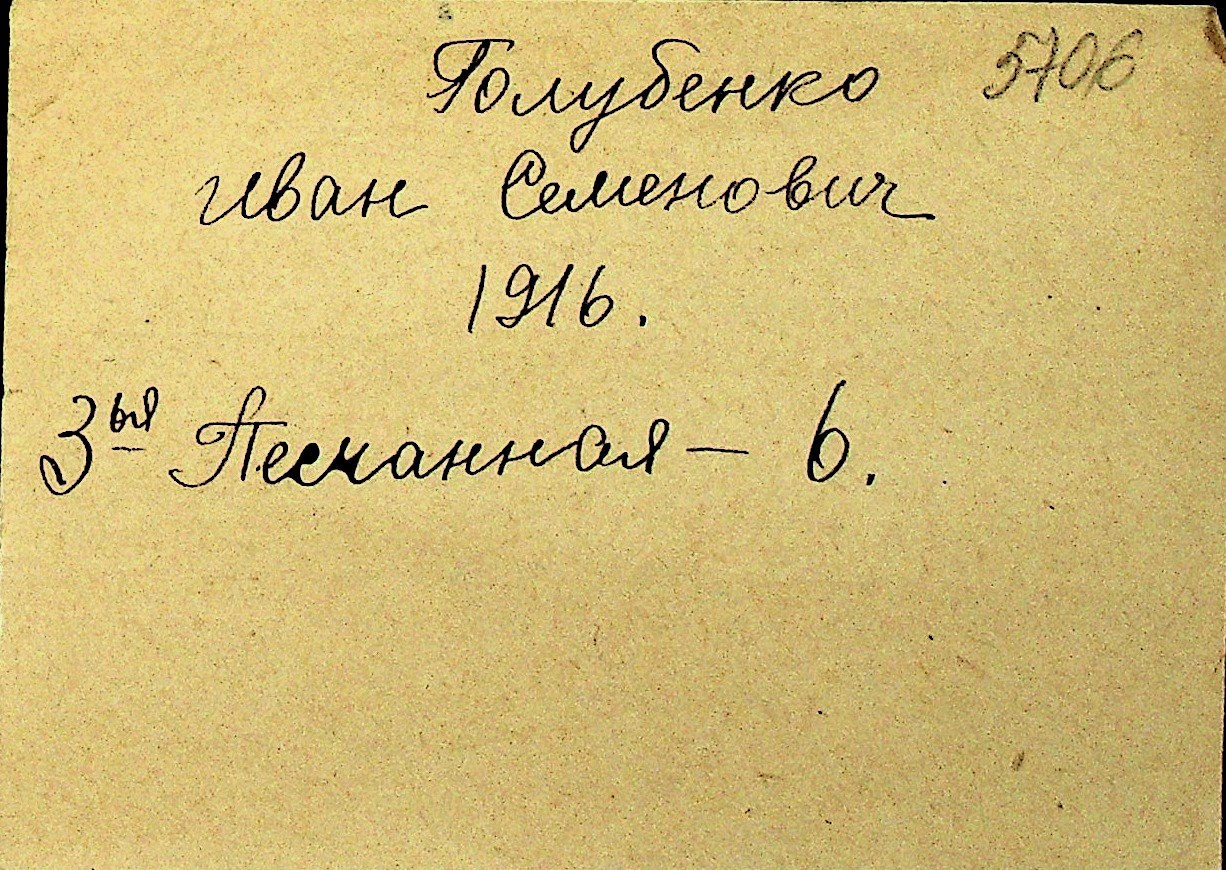 Голубенко 5706
Иван Семенович
1916.
3ья Песчанная - 6.